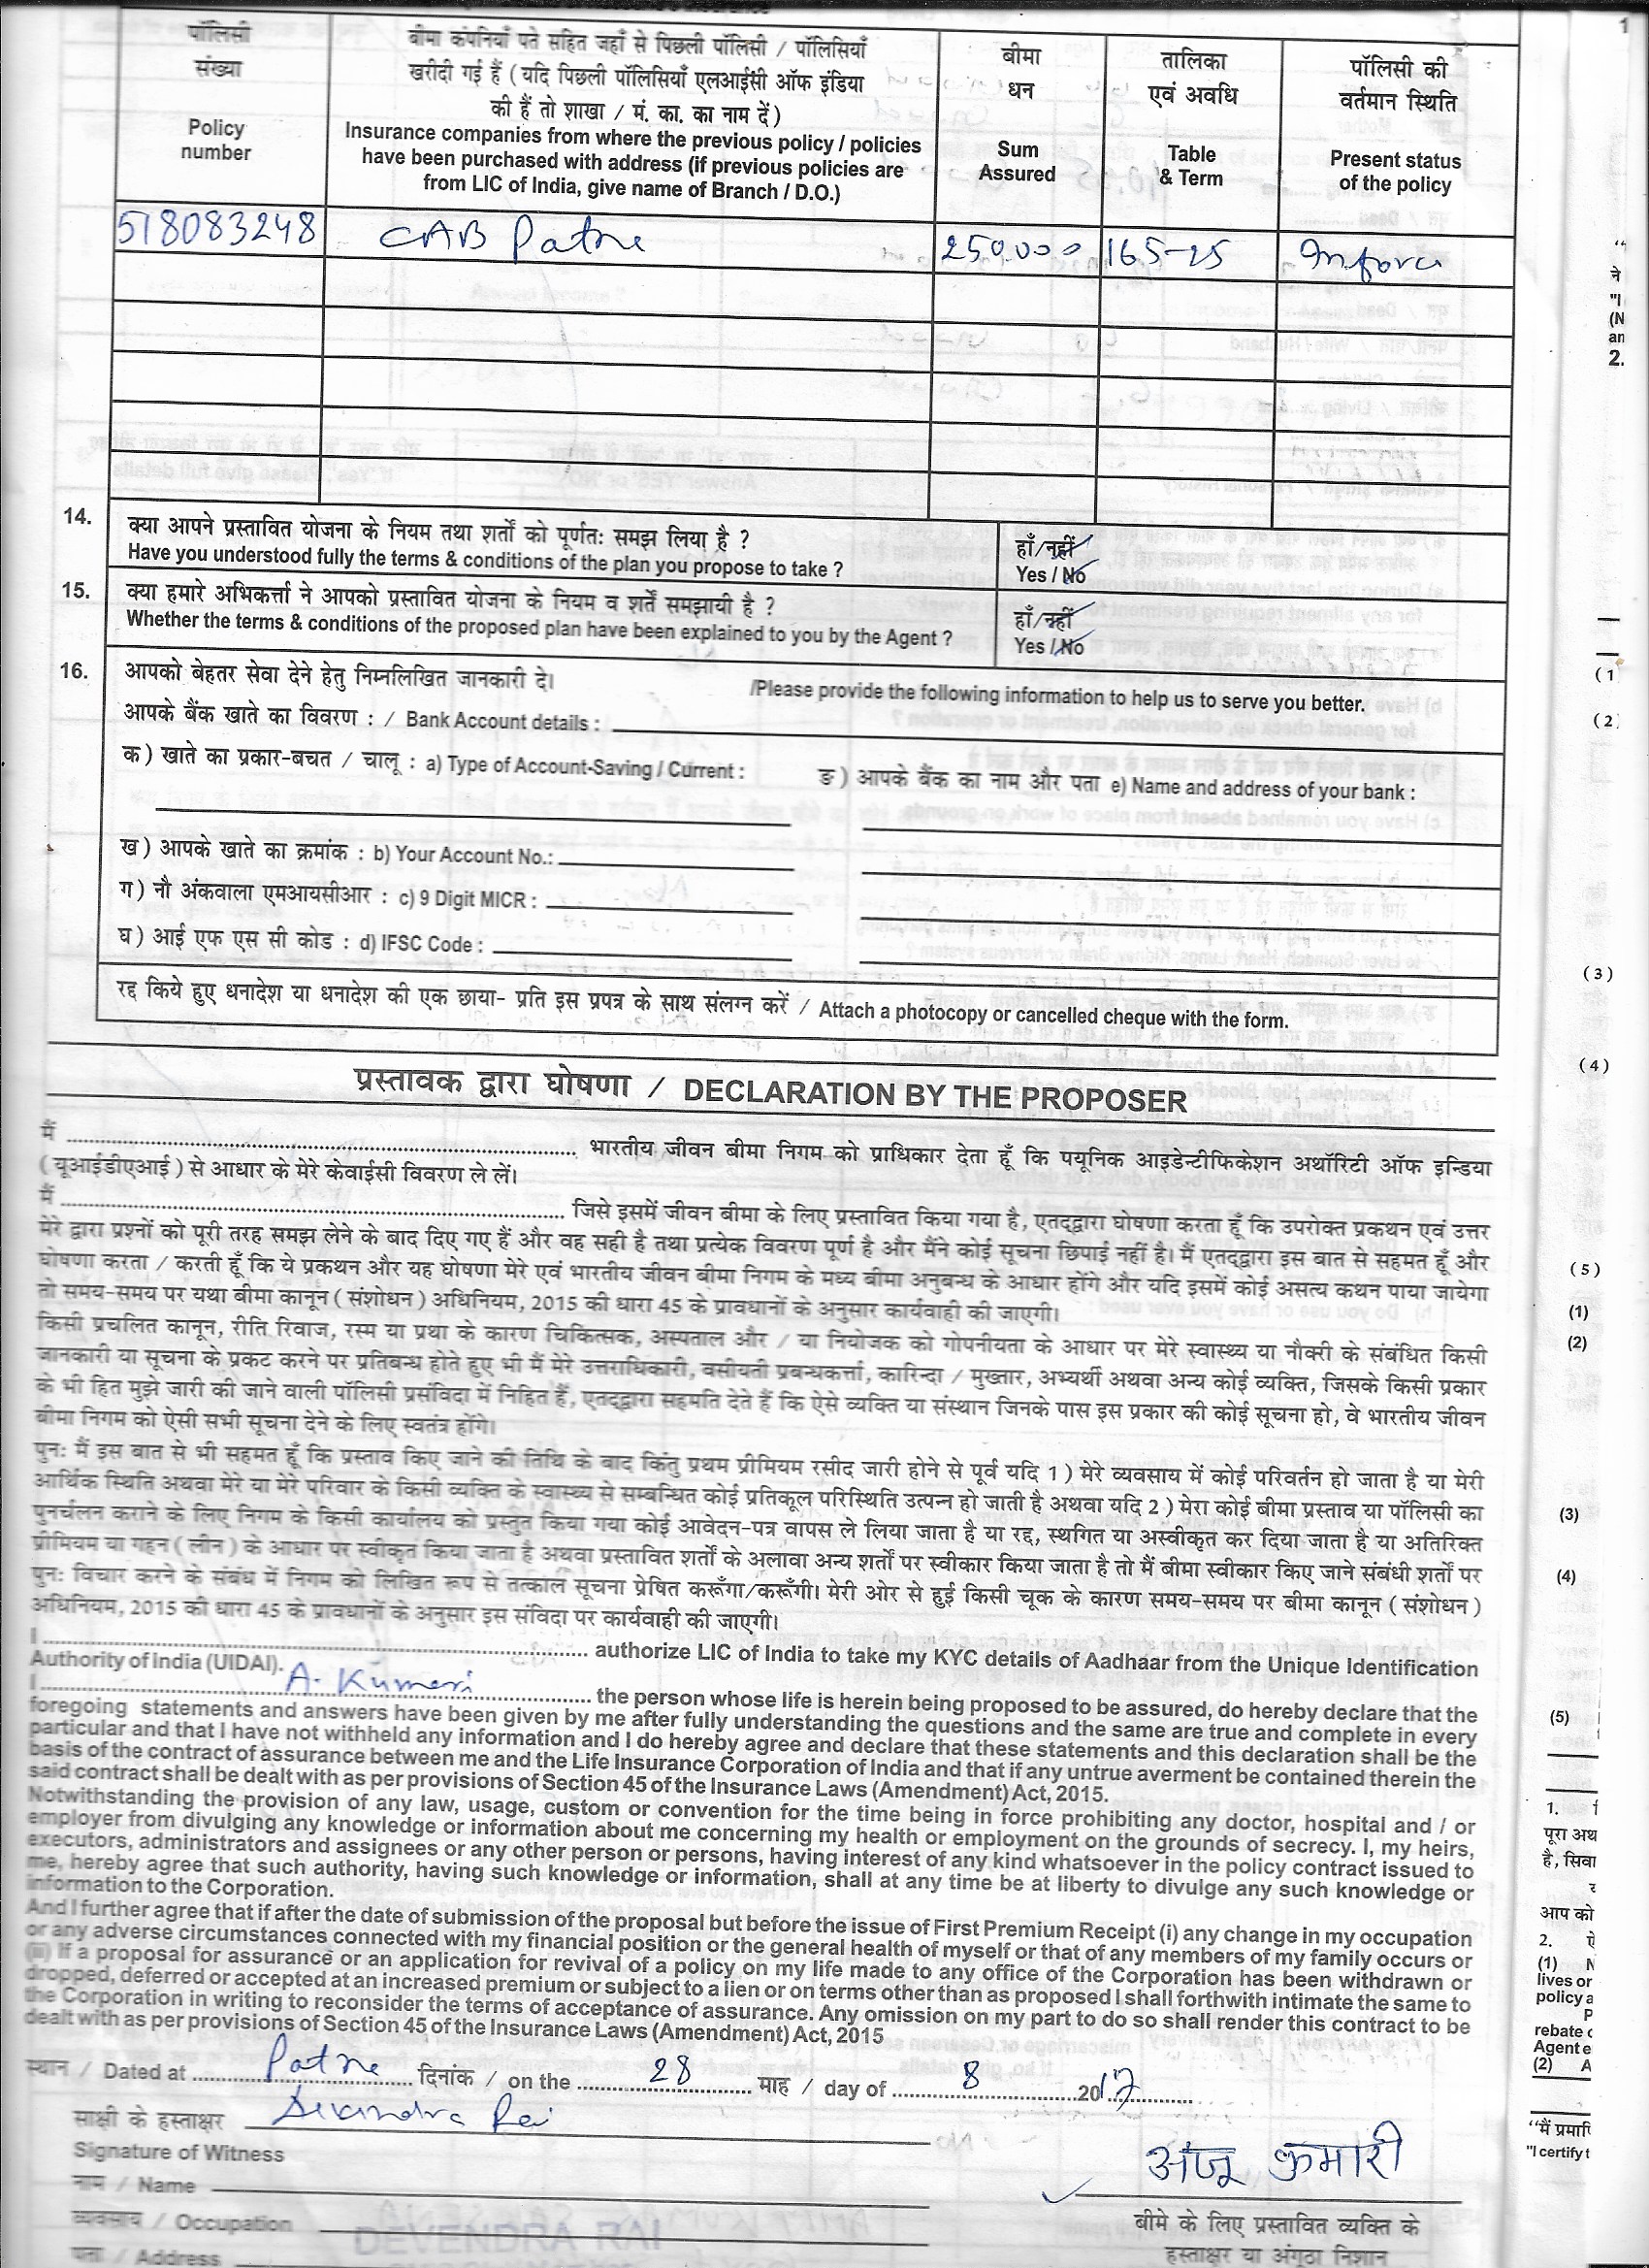 पॉलिसी
संख्या
Policy
number
बीमा कंपनियाँ पते सहित जहाँ से पिछली पॉलिसी / पॉलिसियाँ
खरीदी गई हैं ( यदि पिछली पॉलिसियाँ एलआईसी ऑफ इंडिया
की हैं तो शाखा / मं. का. का नाम दें )
Insurance companies from where the previous policy / policies
have been purchased with address (if previous policies are
from LIC of India, give name of Branch / D.O.)
बीमा
धन
Sum
Assured
तालिका
एवं अवधि
Table
& Term
पॉलिसी की
वर्तमान स्थिति
Present status
of the policy
518083248 CAB Patne 250.000 165-25 Inforce
14. क्या आपने प्रस्तावित योजना के नियम तथा शर्तों को पूर्णतः समझ लिया है ? हाँ/नहीं
Have you understood fully the terms & conditions of the plan you propose to take ? Yes / No
15. क्या हमारे अभिकर्त्ता ने आपको प्रस्तावित योजना के नियम व शर्तें समझायी है ? हाँ/नहीं
Whether the terms & conditions of the proposed plan have been explained to you by the Agent ? Yes / No
16. आपको बेहतर सेवा देने हेतु निम्नलिखित जानकारी दे। /Please provide the following information to help us to serve you better.
आपके बैंक खाते का विवरण : / Bank Account details :
क ) खाते का प्रकार-बचत / चालू : a) Type of Account-Saving / Current : ङ ) आपके बैंक का नाम और पता e) Name and address of your bank :
ख ) आपके खाते का क्रमांक : b) Your Account No.:
ग ) नौ अंकवाला एमआयसीआर : c) 9 Digit MICR :
घ ) आई एफ एस सी कोड : d) IFSC Code :
रद्द किये हुए धनादेश या धनादेश की एक छाया- प्रति इस प्रपत्र के साथ संलग्न करें / Attach a photocopy or cancelled cheque with the form.
प्रस्तावक द्वारा घोषणा / DECLARATION BY THE PROPOSER
मैं .......... भारतीय जीवन बीमा निगम को प्राधिकार देता हूँ कि पयूनिक आइडेन्टीफिकेशन अथॉरिटी ऑफ इन्डिया
( यूआईडीएआई ) से आधार के मेरे केवाईसी विवरण ले लें।
मैं .......... जिसे इसमें जीवन बीमा के लिए प्रस्तावित किया गया है, एतद्द्वारा घोषणा करता हूँ कि उपरोक्त प्रकथन एवं उत्तर
मेरे द्वारा प्रश्नों को पूरी तरह समझ लेने के बाद दिए गए हैं और वह सही है तथा प्रत्येक विवरण पूर्ण है और मैंने कोई सूचना छिपाई नहीं है। मैं एतद्द्वारा इस बात से सहमत हूँ और
घोषणा करता / करती हूँ कि ये प्रकथन और यह घोषणा मेरे एवं भारतीय जीवन बीमा निगम के मध्य बीमा अनुबन्ध के आधार होंगे और यदि इसमें कोई असत्य कथन पाया जायेगा
तो समय-समय पर यथा बीमा कानून ( संशोधन ) अधिनियम, 2015 की धारा 45 के प्रावधानों के अनुसार कार्यवाही की जाएगी।
किसी प्रचलित कानून, रीति रिवाज, रस्म या प्रथा के कारण चिकित्सक, अस्पताल और / या नियोजक को गोपनीयता के आधार पर मेरे स्वास्थ्य या नौकरी के संबंधित किसी
जानकारी या सूचना के प्रकट करने पर प्रतिबन्ध होते हुए भी मैं मेरे उत्तराधिकारी, वसीयती प्रबन्धकर्त्ता, कारिन्दा / मुख्तार, अभ्यर्थी अथवा अन्य कोई व्यक्ति, जिसके किसी प्रकार
के भी हित मुझे जारी की जाने वाली पॉलिसी प्रसंविदा में निहित हैं, एतद्द्वारा सहमति देते हैं कि ऐसे व्यक्ति या संस्थान जिनके पास इस प्रकार की कोई सूचना हो, वे भारतीय जीवन
बीमा निगम को ऐसी सभी सूचना देने के लिए स्वतंत्र होंगे।
पुनः मैं इस बात से भी सहमत हूँ कि प्रस्ताव किए जाने की तिथि के बाद किंतु प्रथम प्रीमियम रसीद जारी होने से पूर्व यदि 1 ) मेरे व्यवसाय में कोई परिवर्तन हो जाता है या मेरी
आर्थिक स्थिति अथवा मेरे या मेरे परिवार के किसी व्यक्ति के स्वास्थ्य से सम्बन्धित कोई प्रतिकूल परिस्थिति उत्पन्न हो जाती है अथवा यदि 2 ) मेरा कोई बीमा प्रस्ताव या पॉलिसी का
पुनर्चलन कराने के लिए निगम के किसी कार्यालय को प्रस्तुत किया गया कोई आवेदन-पत्र वापस ले लिया जाता है या रद्द, स्थगित या अस्वीकृत कर दिया जाता है या अतिरिक्त
प्रीमियम या गहन ( लीन ) के आधार पर स्वीकृत किया जाता है अथवा प्रस्तावित शर्तों के अलावा अन्य शर्तों पर स्वीकार किया जाता है तो मैं बीमा स्वीकार किए जाने संबंधी शर्तों पर
पुनः विचार करने के संबंध में निगम को लिखित रूप से तत्काल सूचना प्रेषित करूँगा/करूँगी। मेरी ओर से हुई किसी चूक के कारण समय-समय पर बीमा कानून ( संशोधन )
अधिनियम, 2015 की धारा 45 के प्रावधानों के अनुसार इस संविदा पर कार्यवाही की जाएगी।
I .......... authorize LIC of India to take my KYC details of Aadhaar from the Unique Identification
Authority of India (UIDAI).
I .......... A. Kumari .......... the person whose life is herein being proposed to be assured, do hereby declare that the
foregoing statements and answers have been given by me after fully understanding the questions and the same are true and complete in every
particular and that I have not withheld any information and I do hereby agree and declare that these statements and this declaration shall be the
basis of the contract of assurance between me and the Life Insurance Corporation of India and that if any untrue averment be contained therein the
said contract shall be dealt with as per provisions of Section 45 of the Insurance Laws (Amendment) Act, 2015.
Notwithstanding the provision of any law, usage, custom or convention for the time being in force prohibiting any doctor, hospital and / or
employer from divulging any knowledge or information about me concerning my health or employment on the grounds of secrecy. I, my heirs,
executors, administrators and assignees or any other person or persons, having interest of any kind whatsoever in the policy contract issued to
me, hereby agree that such authority, having such knowledge or information, shall at any time be at liberty to divulge any such knowledge or
information to the Corporation.
And I further agree that if after the date of submission of the proposal but before the issue of First Premium Receipt (i) any change in my occupation
or any adverse circumstances connected with my financial position or the general health of myself or that of any members of my family occurs or
(ii) If a proposal for assurance or an application for revival of a policy on my life made to any office of the Corporation has been withdrawn or
dropped, deferred or accepted at an increased premium or subject to a lien or on terms other than as proposed I shall forthwith intimate the same to
the Corporation in writing to reconsider the terms of acceptance of assurance. Any omission on my part to do so shall render this contract to be
dealt with as per provisions of Section 45 of the Insurance Laws (Amendment) Act, 2015
स्थान / Dated at Patne दिनांक / on the 28 माह / day of 8 2017
साक्षी के हस्ताक्षर Devendra Rai
Signature of Witness
अंजू कुमारी
नाम / Name
व्यवसाय / Occupation
DEVENDRA RAI
पता / Address
बीमे के लिए प्रस्तावित व्यक्ति के
हस्ताक्षर या अंगूठा निशान